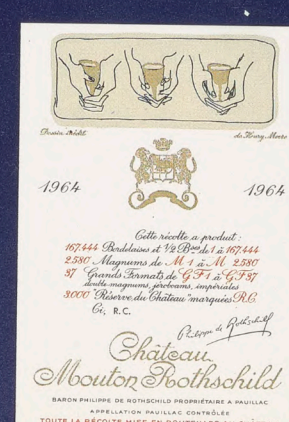 Dessin inédit de Henry Moore
1964 1964
Cette récolte a produit:
167.444 Bordelaises et 1/2 Bses de 1 à 167.444
2.580 Magnums de M 1 à M 2.580
37 Grands Formats de G F 1 à G F 37
double-magnums, jéroboams, impériales
3.000 "Réserve du Château" marquées R.C.
Ci, R.C.
Philippe de Rothschild
Château
Mouton Rothschild
BARON PHILIPPE DE ROTHSCHILD PROPRIÉTAIRE A PAUILLAC
APPELLATION PAUILLAC CONTRÔLÉE
TOUTE LA RÉCOLTE MISE EN BOUTEILLES AU